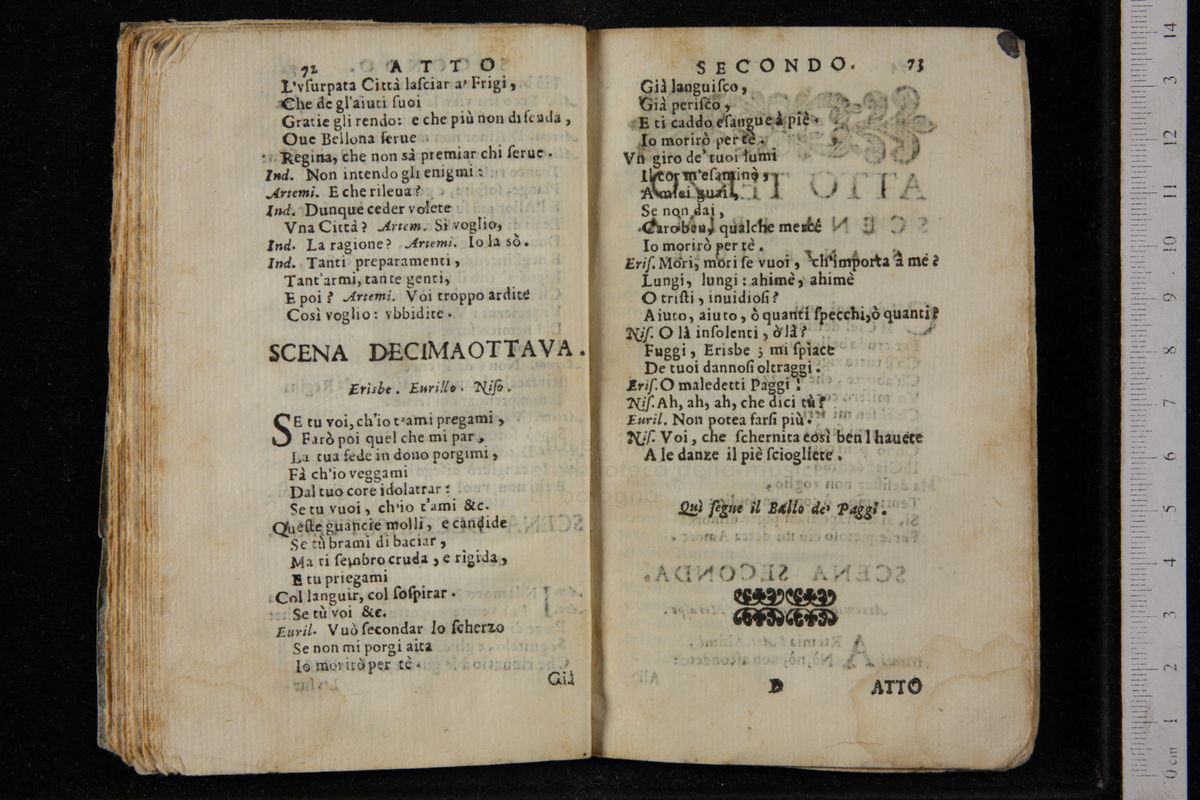 72 ATTO
L'vſurpata Città laſciar a' Frigi,
Che de gl'aiuti ſuoi
Gratie gli rendo: e che più non difenda,
Oue Bellona ſerue
Regina, che non sà premiar chi ſerue.
Ind. Non intendo gli enigmi:
Artemi. E che rileua?
Ind. Dunque ceder volete
Vna Città? Artem. Sì voglio,
Ind. La ragione? Artemi. Io la sò.
Ind. Tanti preparamenti,
Tant'armi, tante genti,
E poi? Artemi. Voi troppo ardite
Così voglio: vbbidite.
SCENA DECIMAOTTAVA.
Erisbe. Eurillo. Niſo.
SE tu voi, ch'io t'ami pregami,
Farò poi quel che mi par,
La tua fede in dono porgimi,
Fà ch'io veggami
Dal tuo core idolatrar:
Se tu vuoi, ch'io t'ami &c.
Queſte guancie molli, e candide
Se tù brami di baciar,
Ma ti ſembro cruda, e rigida,
E tu priegami
Col languir, col ſoſpirar.
Se tù voi &c.
Euril. Vuò ſecondar lo ſcherzo
Se non mi porgi aita
Io morirò per tè.
Già
SECONDO. 73
Già languiſco,
Già periſco,
E ti caddo eſangue à piè.
Io morirò per tè.
Vn giro de' tuoi lumi
Il cor m'eſamino,
A miei guai,
Se non dai,
Caro ben, qualche mercé
Io morirò per tè.
Eriſ. Mori, mori ſe vuoi, ch'importa à me?
Lungi, lungi: ahimè, ahimè
O triſti, inuidioſi?
Aiuto, aiuto, ò quanti ſpecchi, ò quanti?
Niſ. O là inſolenti, ò là?
Fuggi, Erisbe; mi ſpiace
De tuoi dannoſi oltraggi.
Eriſ. O maledetti Paggi!
Niſ. Ah, ah, ah, che dici tù?
Euril. Non potea farſi più.
Niſ. Voi, che ſchernita così ben l hauete
A le danze il piè ſciogliete.
Quì ſegue il Ballo de' Paggi.
D ATTO